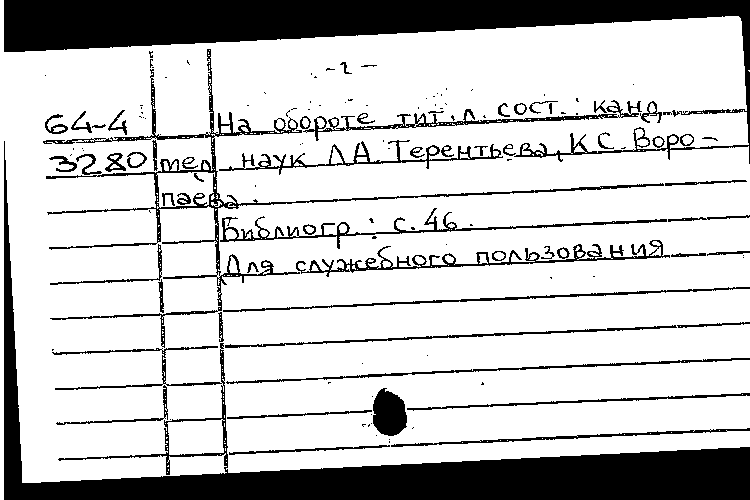 -2-
64-4 На обороте тит. л. сост.: канд.
3280 мед. наук Л.А. Терентьева, К.С. Воро-
паева.
Библиогр.: с. 46.
Для служебного пользования